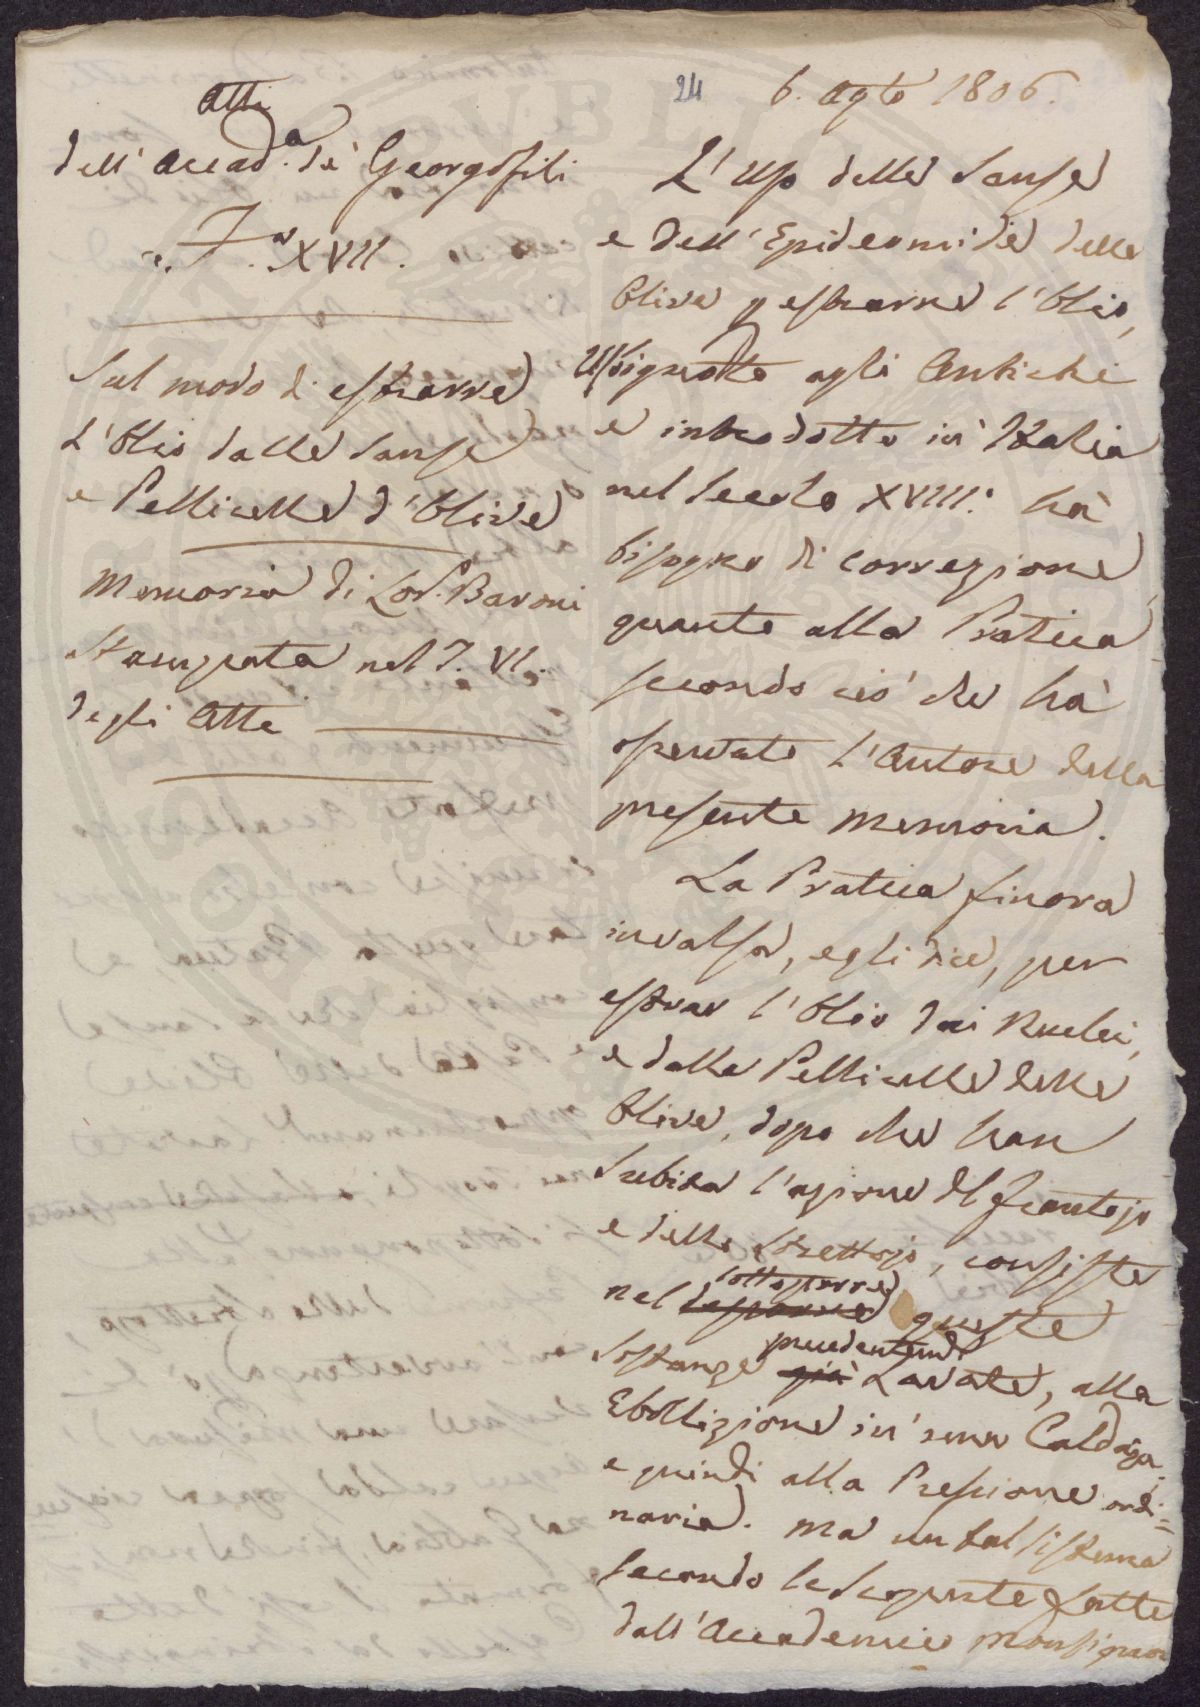 Atti
dell' Accad.a de' Georgofili
T. XVII.
Sul modo di estrarre
L'Olio dalle Sanse
e Pellicelle d'Olive
Memoria di Lod.o Baroni
Stampata nel T. VI.
degli Atti
24 6. Agto 1806.
L'Uso delle Sanse
e dell' Epidermide delle
Olive p estrarne l'Olio,
agli Antichi
e introdotto in Italia
nel Secolo XVIII. hà
bisogno di correzione
quanto alla Pratica
secondo ciò che hà
osservato l'Autore della
presente Memoria.
La Pratica finora
invalsa, egli dice, per
estrar l'Olio dai Nuclei,
e dalle Pellicelle delle
Olive, dopo che han
Subita l'azione del frantojo
e dello Strettojo, consiste
nel sottoporre queste
Sostanze precedentem. già Lavate, alla
Ebollizione in una Caldaja,
e quindi alla Pressione ordi=
naria. Ma un tal sistema
secondo le Scoperte fatte
dall' Accademico Monsignor